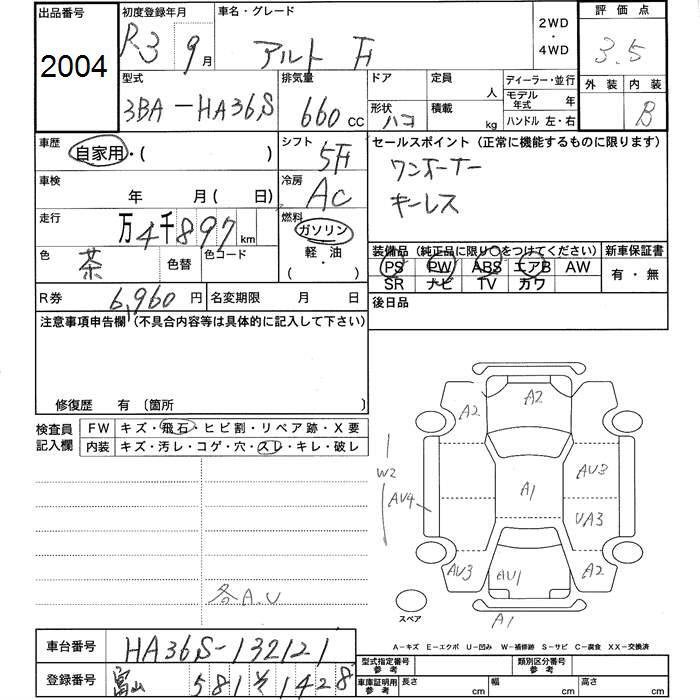 出品番号 初度登録年月 車名・グレード 2WD・4WD 評価点
2004 R3 9月 アルト F 3.5
型式 排気量 ドア 定員 人 ディーラー・並行 外装 内装
3BA-HA36S 660cc 形状 ハコ 積載 kg モデル年式 年 B
ハンドル 左・右
車歴 自家用・( ) シフト 5F セールスポイント(正常に機能するものに限ります)
ワンオーナー
車検 年 月( 日) 冷房 AC キーレス
走行 万4千897km 燃料 ガソリン
軽・油
・( )
色 茶 色替 色コード 装備品(純正品に限り○をつけてください) 新車保証書
PS PW ABS エアB AW 有・無
SR ナビ TV カワ
R券 6,960円 名変期限 月 日 後日品
注意事項申告欄(不具合内容等は具体的に記入して下さい)
修復歴 有 〔箇所 〕
検査員記入欄 FW キズ・飛石・ヒビ割・リペア跡・X要
内装 キズ・汚レ・コゲ・穴・スレ・キレ・破レ
A2 A2
W2 AV4 A1 AV3
VA3
AV3 AU1 A2
各A.U
スペア A1
A-キズ E-エクボ U-凹み W-補修跡 S-サビ C-腐食 XX-交換済
車台番号 HA36S-132121
型式指定番号 参考 類別区分番号 参考
登録番号 富山 581 そ 1428
車庫証明用参考 長さ cm 幅 cm 高さ cm